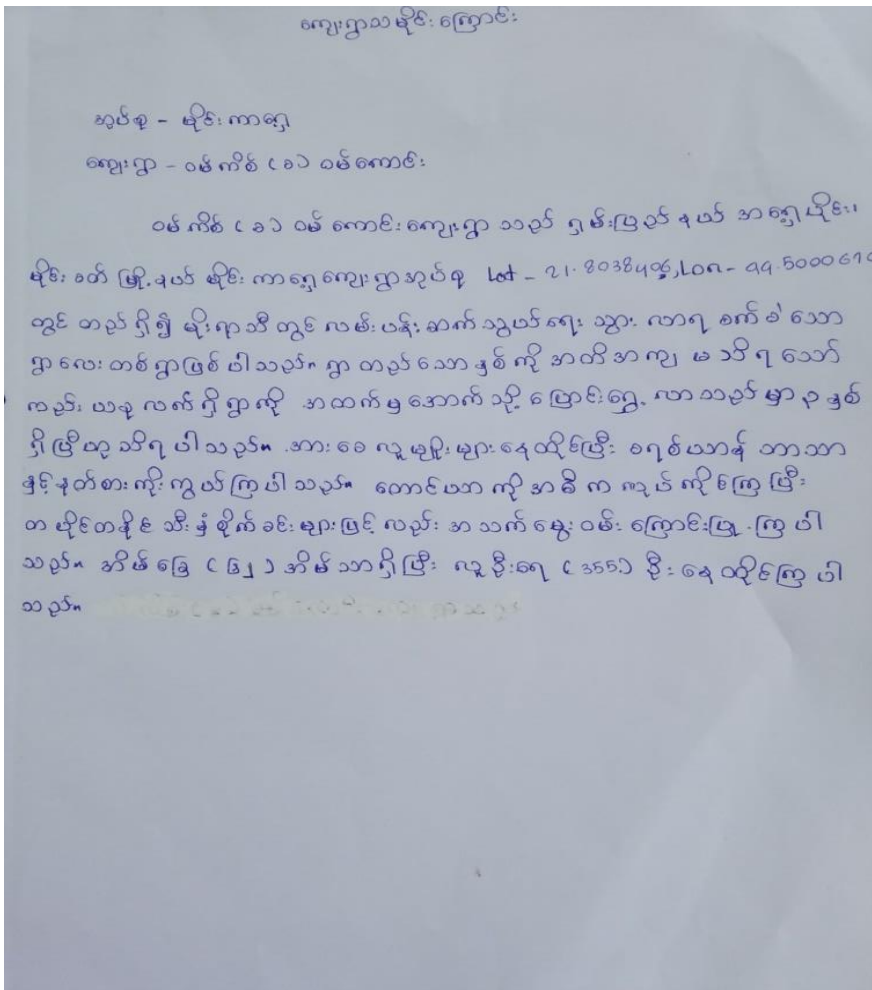 ကျေးရွာသမိုင်းကြောင်း
အုပ်စု - မိုင်းကာရှေ့
ကျေးရွာ - ဝမ်ကိစ် (ခ) ဝမ်ကောင်း
ဝမ်ကိစ် (ခ) ဝမ်ကောင်းကျေးရွာသည် ရှမ်းပြည်နယ် အရှေ့ပိုင်း၊
မိုင်းခတ်မြို့နယ် မိုင်းကာရှေ့ကျေးရွာအုပ်စု Lat - 21.8038406, Lon - 99.5000670
တွင် တည်ရှိ၍ မိုးရာသီတွင် လမ်းပန်းဆက်သွယ်ရေး သွားလာရ ခက်ခဲသော
ရွာလေးတစ်ရွာဖြစ်ပါသည်။ ရွာတည်သောနှစ်ကို အတိအကျ မသိရသော်
လည်း ယခုလက်ရှိရွာကို အထက်မှအောက်သို့ ပြောင်းရွှေ့လာသည်မှာ ၃နှစ်
ရှိပြီဟု သိရပါသည်။ အားခေလူမျိုးများနေထိုင်ပြီး ခရစ်ယာန်ဘာသာ
နှင့်နတ်စားကိုးကွယ်ကြပါသည်။ တောင်ယာကိုအဓိကလုပ်ကိုင်ကြပြီး
တပိုင်တနိုင် သီးနှံစိုက်ခင်းများဖြင့်လည်း အသက်မွေးဝမ်းကြောင်းပြုကြပါ
သည်။ အိမ်ခြေ (၆၂) အိမ်သာရှိပြီး လူဦးရေ (355) ဦး နေထိုင်ကြပါ
သည်။